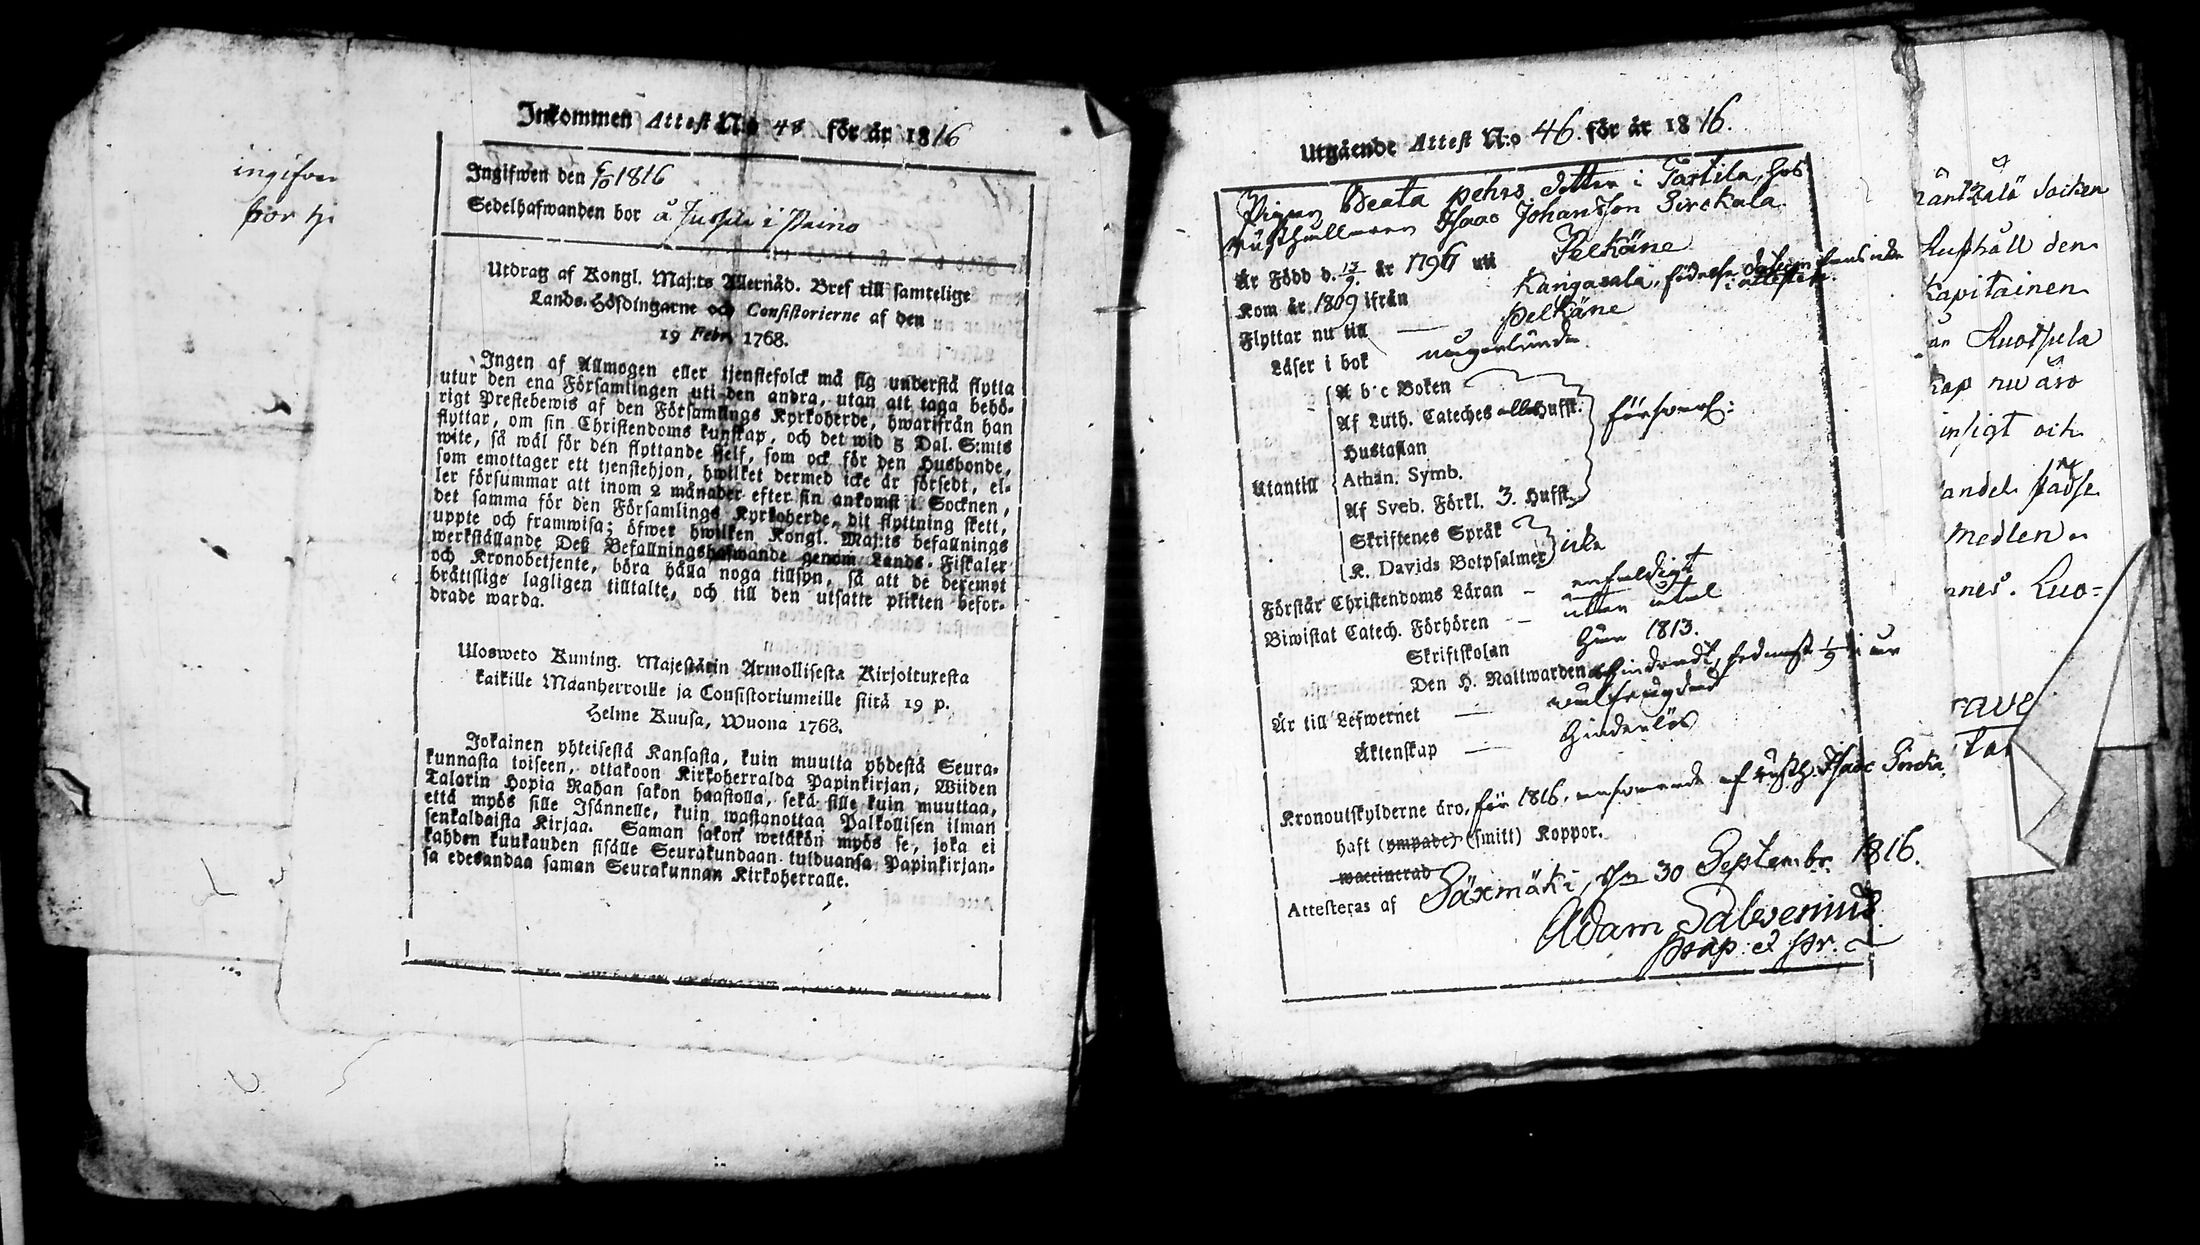 ingifven
bor hi
Inkommen Attest N:o 48 för år 1816
Ingifwen den 6/10 1816
Sedelhafwanden bor å Jussila i Paino
Utdrag af Kongl. Maj:ts Allernåd. Bref till samtelige
Lands-Höfdingarne och Consistorierne af den
19 Febr. 1768.
Ingen af Allmogen eller tjenstefolck må sig understå flytta
utur den ena Församlingen uti den andra, utan att taga behö-
rigt Prestebewis af den Församlings Kyrkoherde, hwarifrån han
flyttar, om sin Christendoms kunskap, och det wid 5 Dal. S:mts
wite, så wäl för den flyttande sjelf, som ock för den Husbonde,
som emottager ett tjenstehjon, hwilket dermed icke är försedt, el-
ler försummar att inom 2 månader efter sin ankomst i Socknen,
det samma för den Församlings Kyrkoherde, dit flyttning skett,
uppte och framwisa; öfwer hwilken Kongl. Maj:ts befallnings
werkställande Deß Befallningshafwande genom Lands-Fiskaler
och Kronobetjente, böra hålla noga tillsyn, så att de deremot
bråtislige lagligen tilltalte, och till den utsatte plikten befor-
drade warda.
Ulosweto Kuning. Majestätin Armollisesta Kirjoituxesta
kaikille Maanherroille ja Consistoriumeille siitä 19 p.
Helme Kuusa, Wuona 1768.
Jokainen yhteisestä Kansasta, kuin muutta yhdestä Seura-
kunnasta toiseen, ottakoon Kirkoherralda Papinkirjan, Wiiden
Talarin Hopia Rahan sakon haastolla, sekä sille kuin muuttaa,
että myös sille Isännelle, kuin wastanottaa Palkollisen ilman
senkaldaista Kirjaa. Saman sakon wetäkön myös se, joka ei
kahden kuukauden sisälle Seurakundaan tulduansa Papinkirjan-
sa edesandaa saman Seurakunnan Kirkoherralle.
Utgående Attest N:o 46 för år 1816.
Pigan Beata Pehrs dotter i Tarttila, hos
rusthållaren Isaac Johansson Sirckala
Är Född d. 13/9 år 1796 uti Pelkäne
Kom år 1809 ifrån Kangasala, födelse datum fans icke
i attesten.
Flyttar nu till — Pelkäne
Läser i bok någorlunda
Utantill
A b c Boken
Af Luth. Cateches alla Hufst.
Hustaflan
Athan. Symb.
Af Sveb. Förkl. 3. Hufst.
försvarl:
Skriftenes Språk
K. Davids Botpsalmer
icke
Förstår Christendoms Läran - enfaldigt
Biwistat Catech. Förhören - utan åtal
Skriftskolan HSee 1813.
Den H. Nattwarden ohindradt, sednast 1/9 i år
Är till Lefwernet — wälfrägdad
Äktenskap — hinderlös
Kronoutskylderne äro, för 1816, answarade af rusth. Isaac Sircka.
haft (ympade) (smitt) Koppor.
waccinerad
Attesteras af Säxmäki, d. 30 Septembr. 1816.
Adam Salvenius
Præp. et Pr.
socken
Rusthåll den
Kapitainen
Ruotsula
nu äro
och
medlen
Luo=